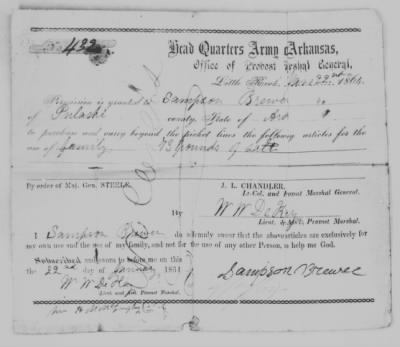 No. 432
Head Quarters Army of Arkansas,
Office of Provost Marshal General,
Little Rock, 22nd 1864.
Permission is granted to Sampson Brewer
of Pulaski county, State of Ark
to purchase and carry beyond the picket lines the following articles for the
use of family 73 pounds of Salt
By order of Maj. Gen. STEELE.
J. L. CHANDLER,
Lt.-Col. and Provost Marshal General.
By
W W
Lieut. & Ass't. Provost Marshal.
I Sampson Brewer do solemnly swear that the above articles are exclusively for
my own use and the use of my family, and not for the use of any other Person, so help me God.
Subscribed and sworn to before me on this
the 22nd day of January 1864
W W
Lieut. and Asst. Provost Marshal.
Sampson Brewer